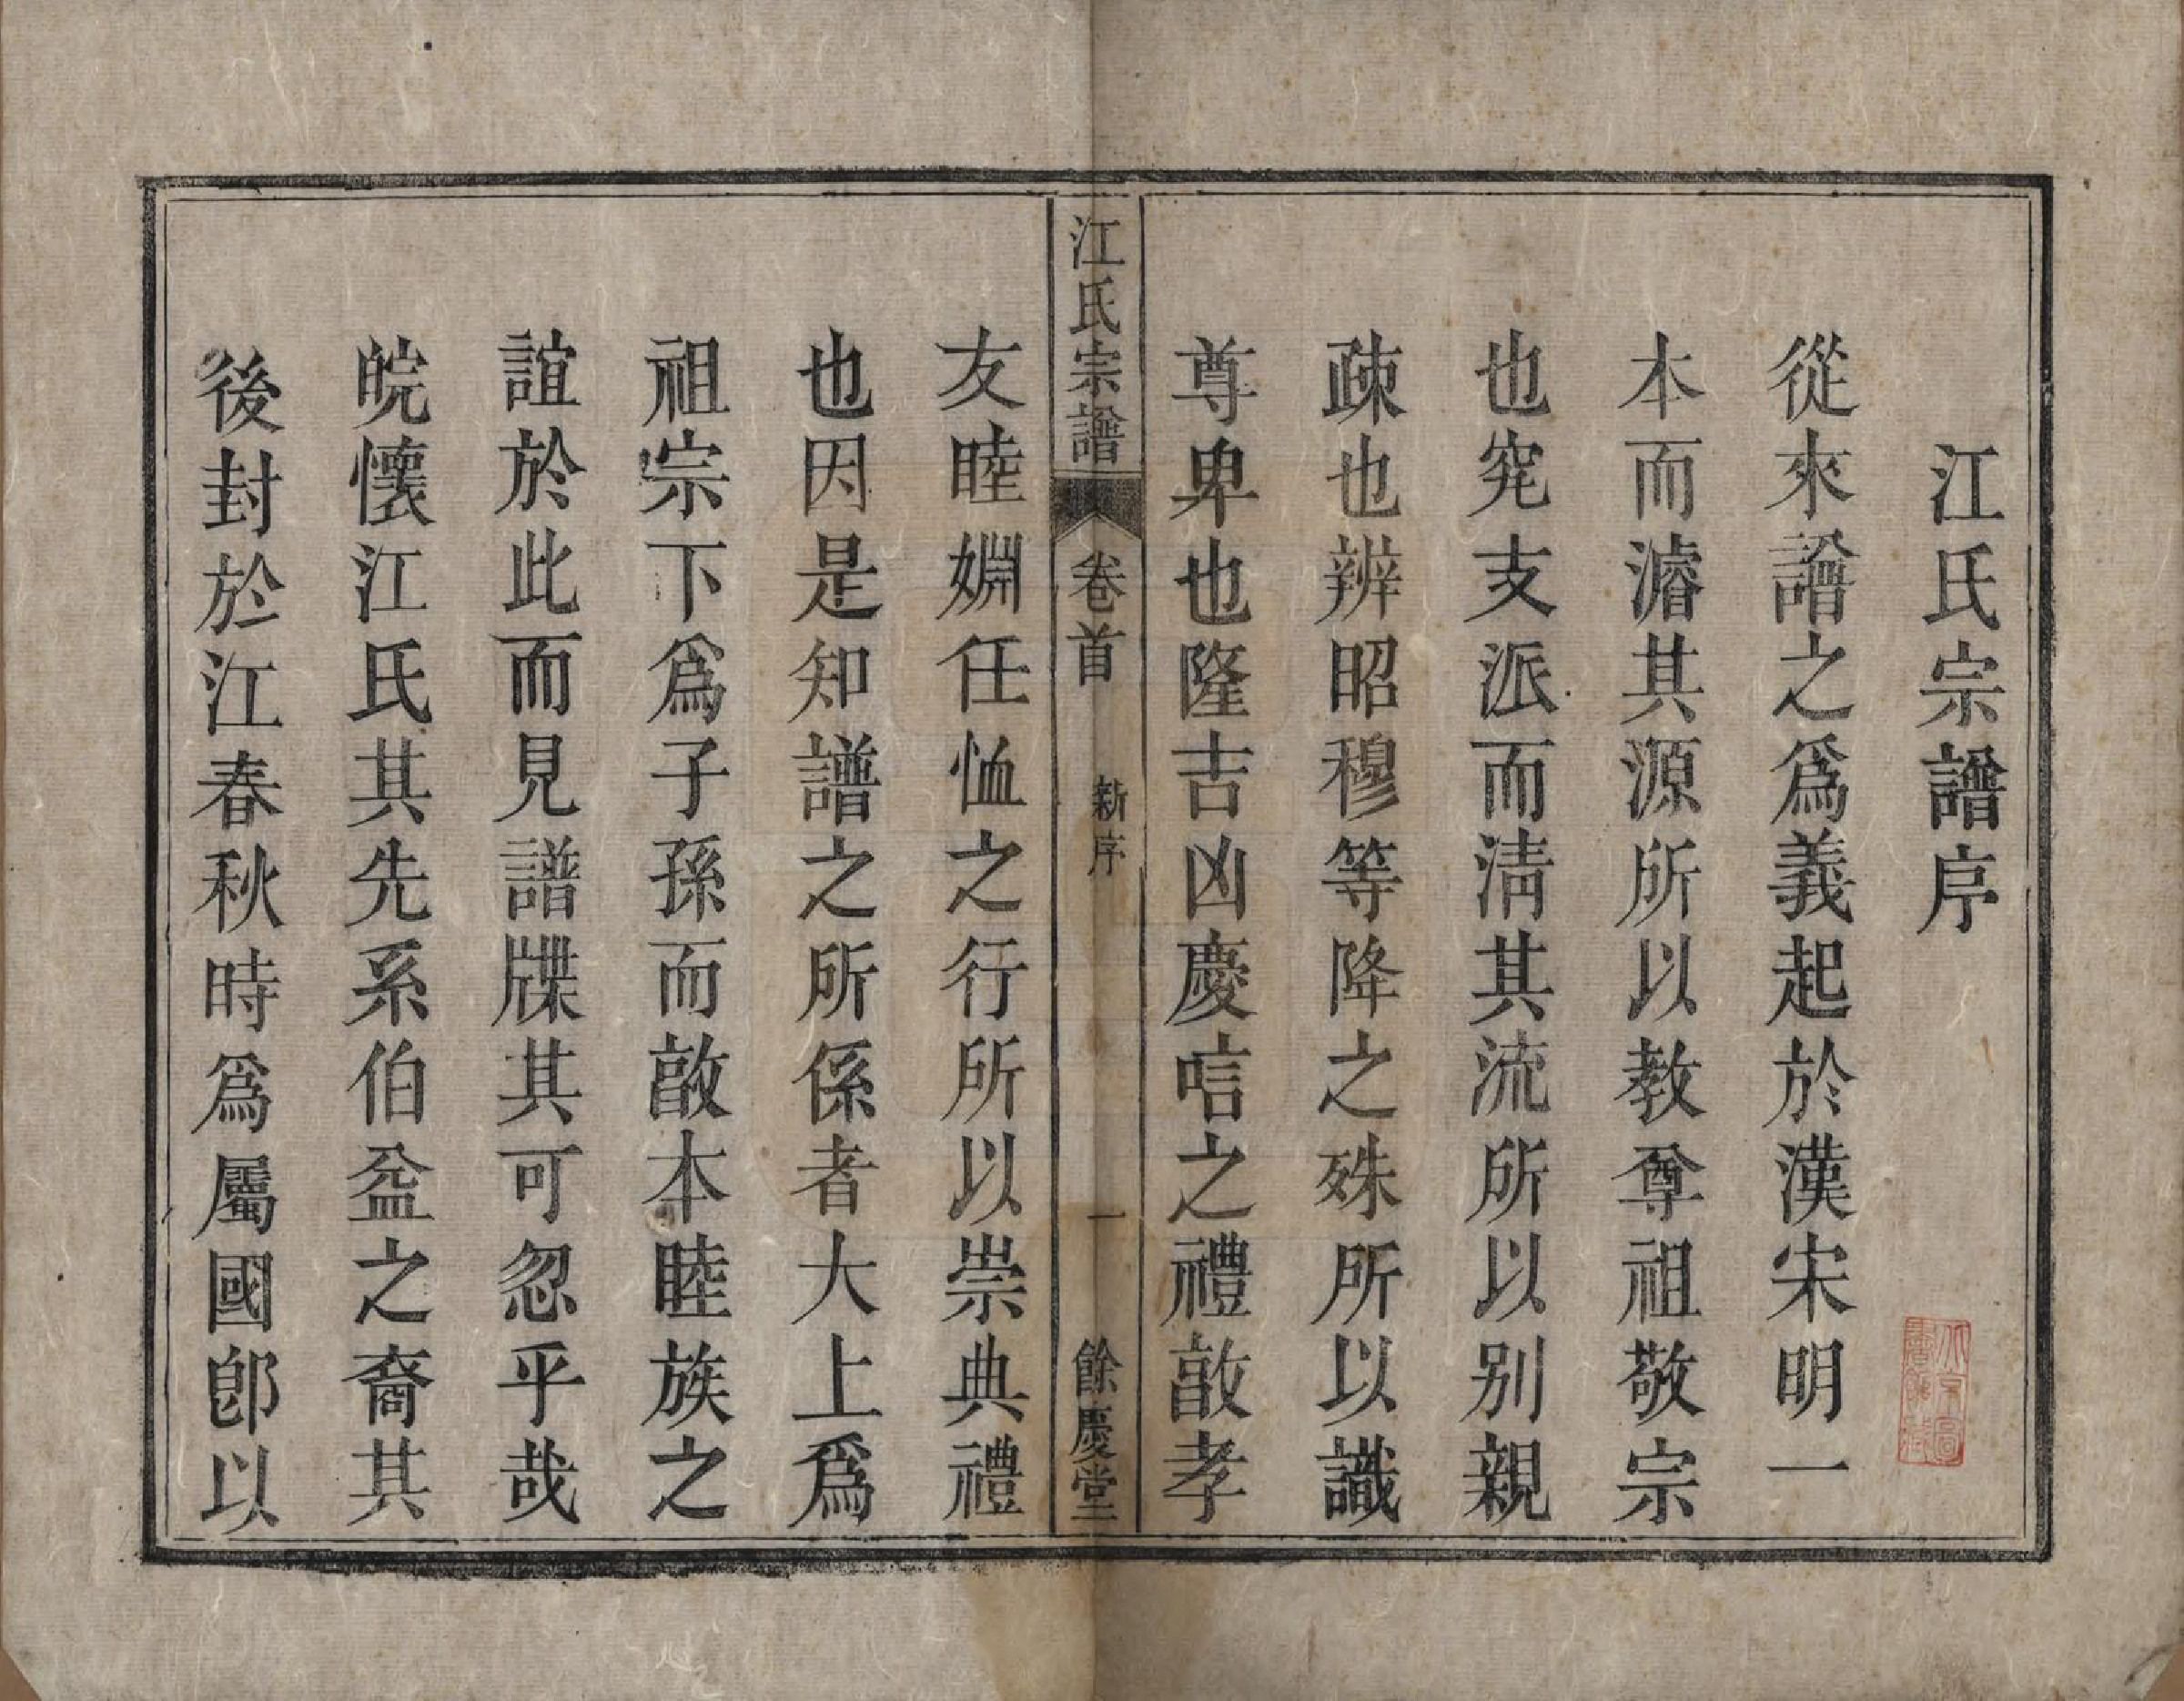 江氏宗譜序
從來譜之爲義起於漢宋明一
本而濬其源所以教尊祖敬宗
也究支派而淸其流所以别親
疎也辨昭穆等降之殊所以識
尊卑也隆吉凶慶唁之禮敦孝
江氏宗譜
卷首
新序
一
餘慶堂
友睦婣任恤之行所以崇典禮
也因是知譜之所係者大上爲
祖宗下爲子孫而敦本睦族之
誼於此而見譜牒其可忽乎哉
皖懷江氏其先系伯益之裔其
後封於江春秋時爲屬國卽以